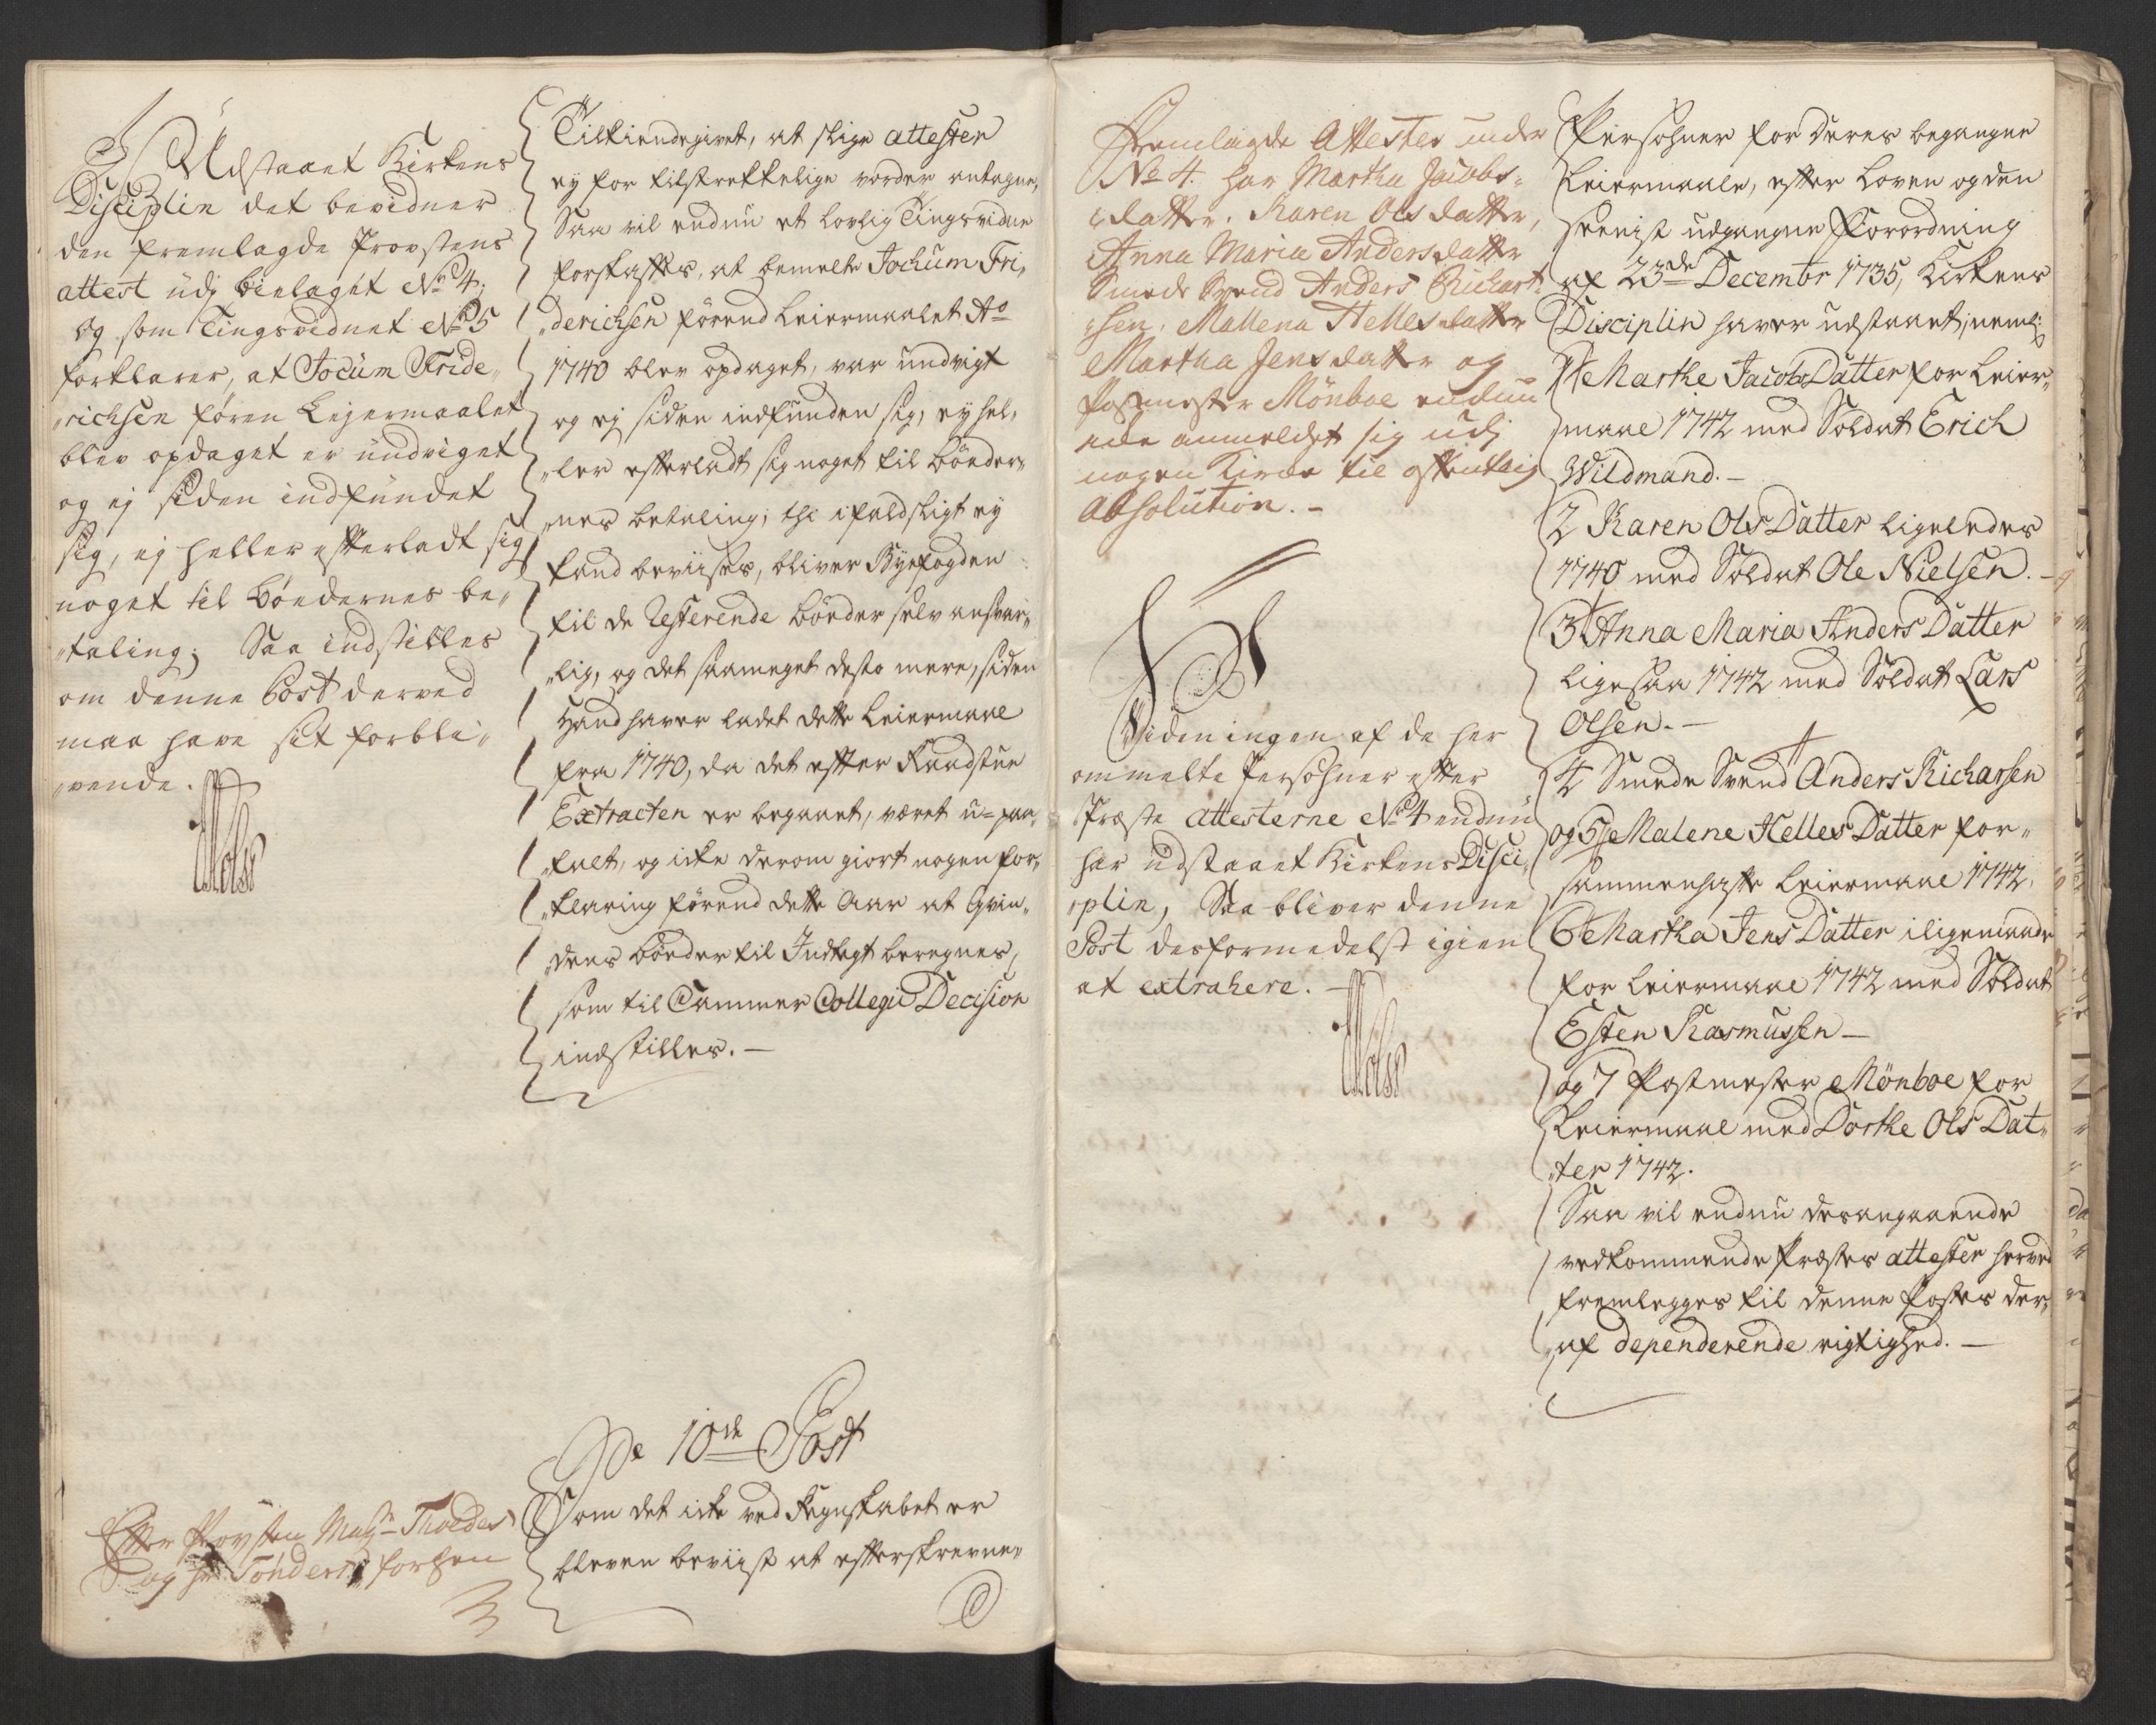 Udstaaet Kirkens
Disciplin det bevidner
den fremlagde Provstens
attest udj bielaget No 4;
og som Tingsvidnet No 5
forklarer, at Jocum Fride„
„richsen føren Lejermaalet
blev opdaget er undviget
og ej siden indfundet
sig, ej heller efterladt sig
noget til bødernes be„
„taling; Saa indstilles
om denne Post derved
maa have sit forbli„
„vende.
Efter Provsten Mag:
og Hr Tønders forhen
Tilkiendegivet, at slige attester
ey for tilstrekkelige vorder antagne,
Saa vil endnu et lovlig Tingsvidne
forskaffes, at bemelte Jochum Fri„
„derichsen førend Leiermaalet Ao
1740 blev opdaget, var undvigt
og ej siden indfunden sig, ey hel„
„ler efterladt sig noget til bøder„
„nes betaling; thi ifald sligt ey
kand beviises, bliver Byefogden
til de Resterende bøder selv ansvar„
„lig, og det saameget desto mere, siden
Hand haver ladet dette Leiermaal
fra 1740, da det efter Raadstue
Extracten er begaaet, været u-paa„
„talt, og icke derom giort nogen for„
„klaring førend dette Aar at Qvin„
„dens bøder til Indtegt beregnes,
som til Cammer Collegii Decision
indstilles. —
De 10de Post
Som det icke ved Regnskabet er
bleven beviist at efterskrevne„
Fremlagde Attester under
No 4. har Martha Jacobs„
„datter. Karen Olsdatter,
Anna Maria Andersdatter
Smede Svend Anders Richart„
„sen, Mallena Hellesdatter
Martha Jensdatter og
Postmester Mønboe endnu
icke anmeldet sig udj
nogen Kircke til offentlig
absolution. —
Videningen af de her
ommelte Persohner efter
Præste attesterne No 4 endnu
har udstaaet Kirkens Disci„
„plin, Saa bliver denne
Post desformedelst igien
at extrahere. —
Persohner for deres begangne
Leiermaale, efter Loven og den
seenist udgangne Forordning
af 23de Decembr 1735, Kirkens
Disciplin haver udstaaet, neml:
1 Marthe Jacobs Datter for Leier„
maal 1742 med Soldat Erich
Wildmand. —
2 Karen Ols Datter ligeledes
1740 med Soldat Ole Nielsen. —
3 Anna Maria Anders Datter
ligesaa 1742 med Soldat Lars
Olsen. —
4 Smede Svend Anders Richarsen
og 5 Malene Helles Datter for„
sammenhafte Leiermaal 1742,
6 Martha Jens Datter iligemaade
for Leiermaal 1742 med Soldat
Esten Rasmussen —
og 7 Postmester Mønboe for
Leiermaal med Dorthe Ols Dat„
„ter 1742.
Saa vil endnu desangaaende
vedkommende Præsters attester herved
fremlegges til denne Postes der„
„af dependerende rigtighed. —